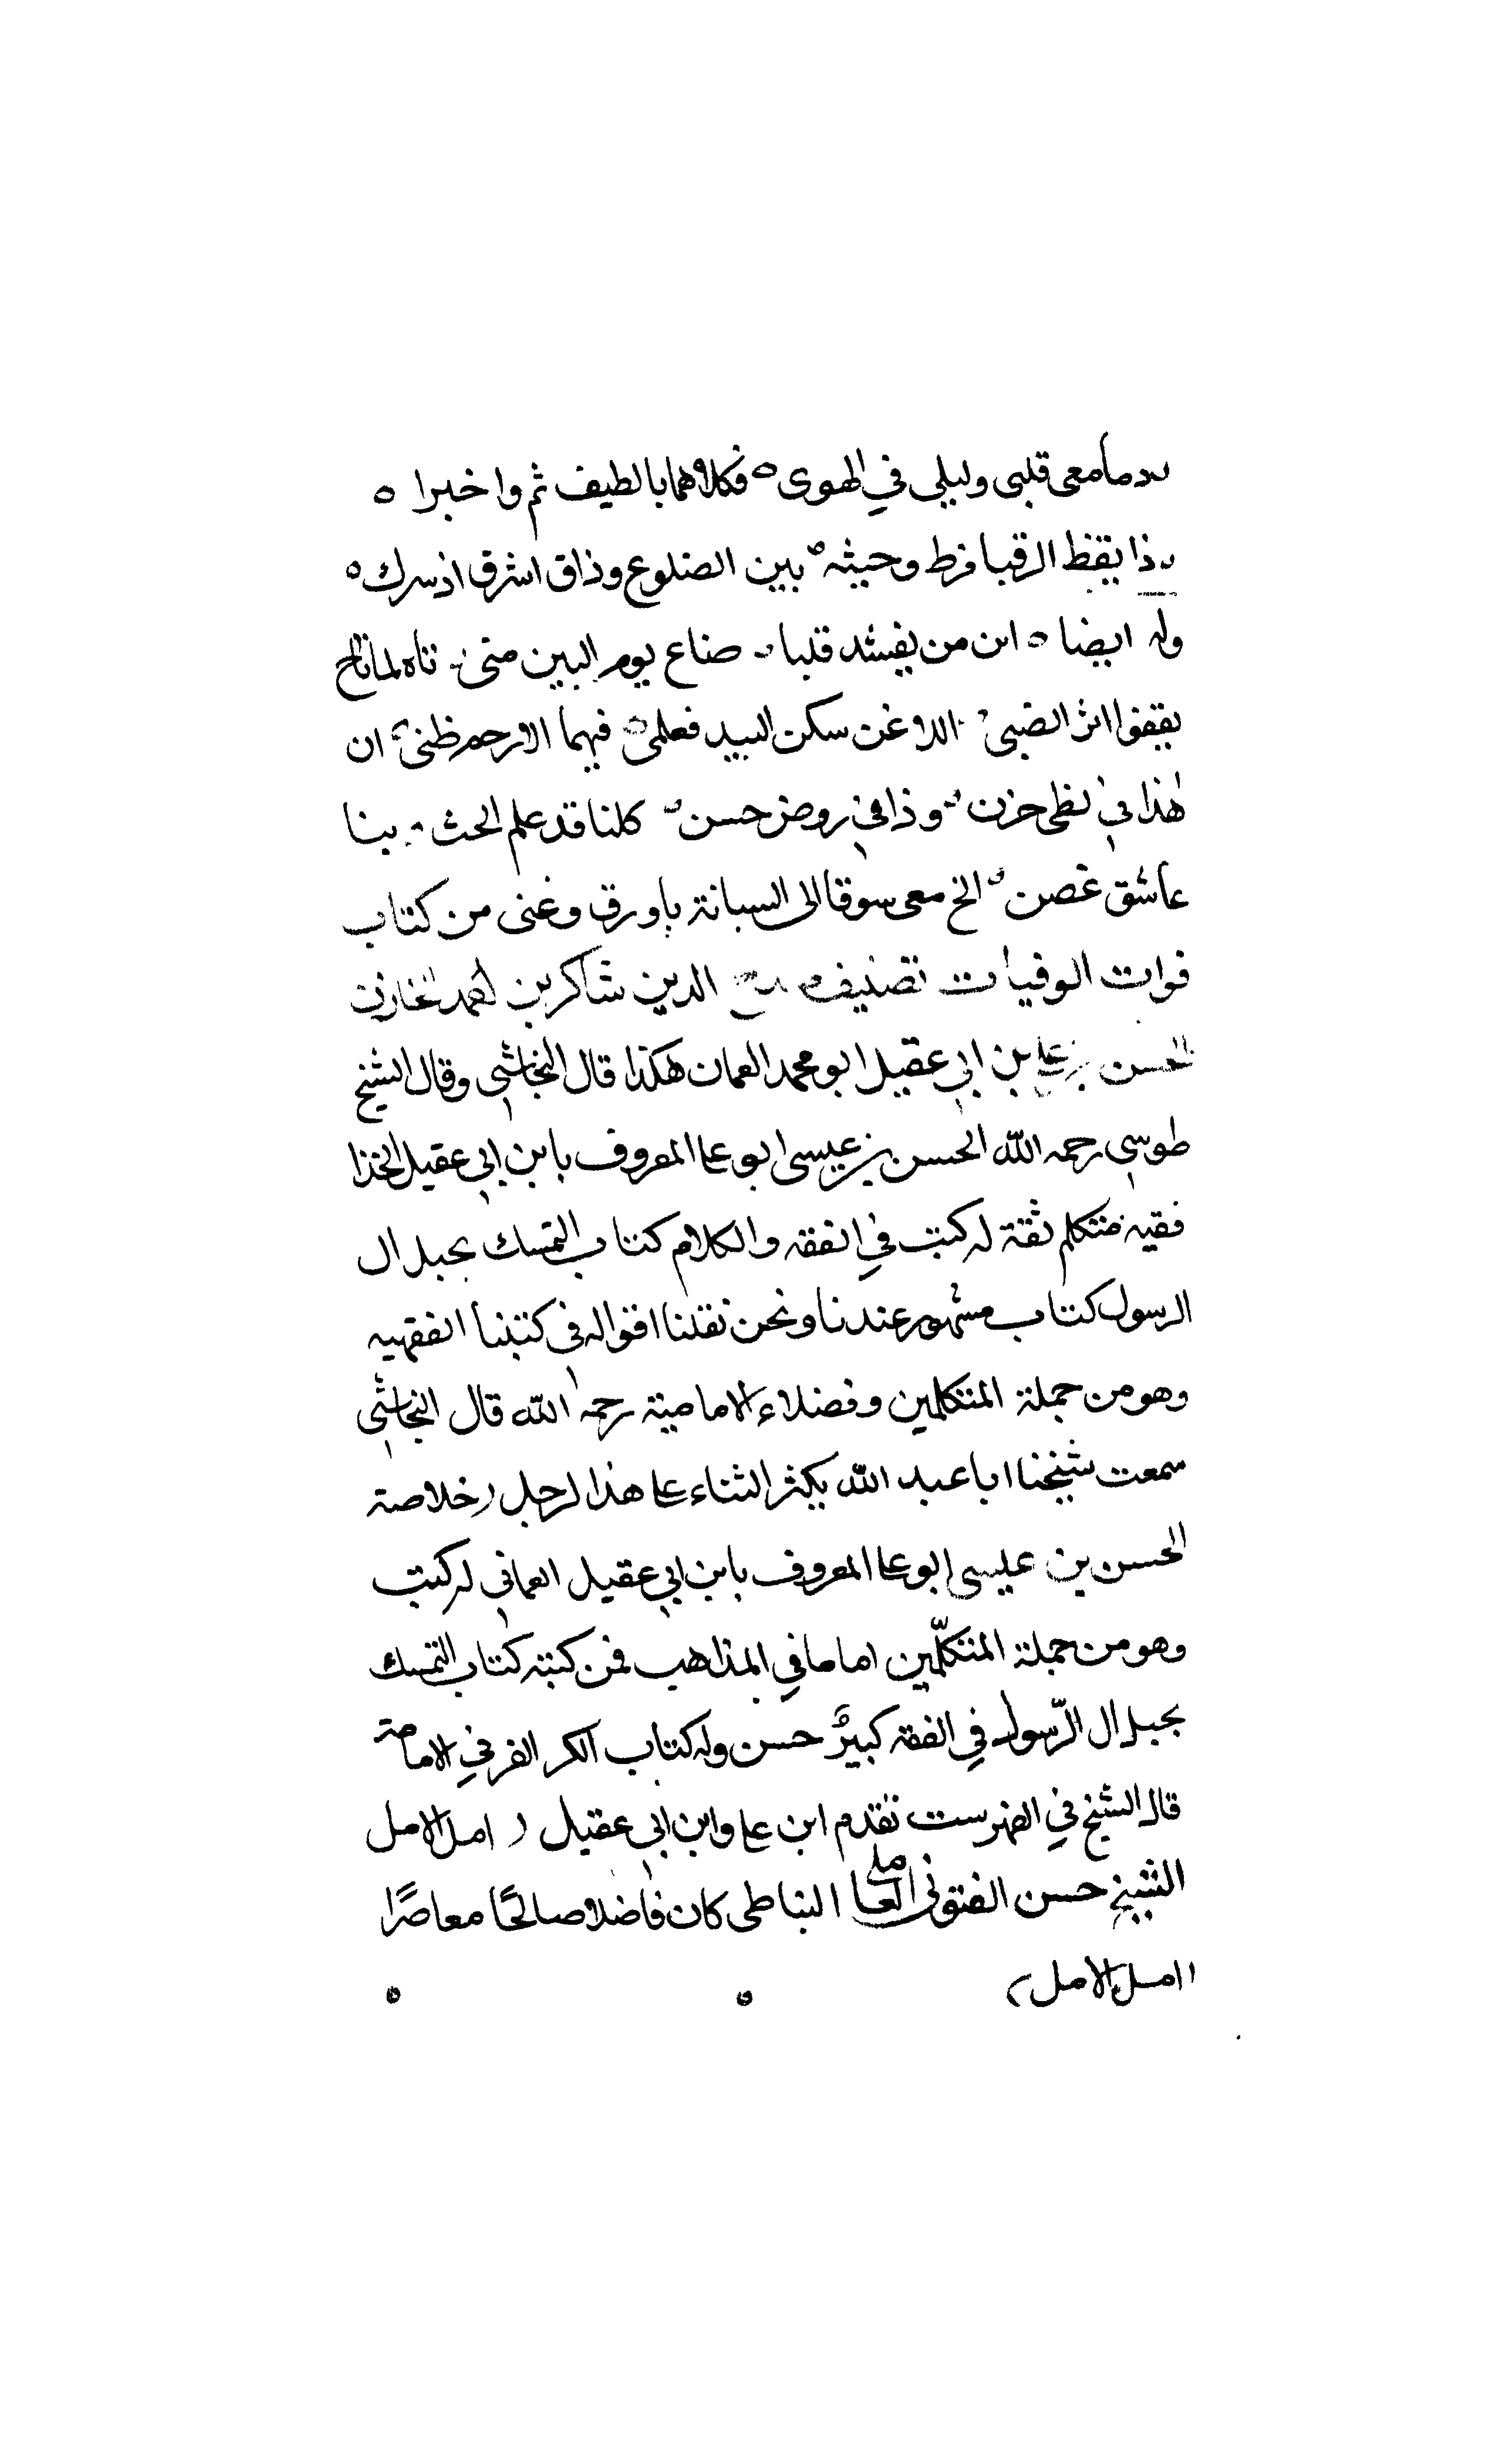 معى قلبى وليلى في الهوى ه فكلاهما بالطيف ثم واخبرا ه
ذا يقظ الرقبا فرط وحيثه بين الضلوع وذاق اشرق اذسرك ه
وله ايضا ه اين من ينشد قلبا ضاع يوم البين منى تاه لما راح
يقفوا اثر الظبى الاغن سكن البيد فعلمى فيهما الا رجم ظنى ان
هذا في لظى حزن وذا في روض حسن كلنا قد علم الحث بنا
عاشق غصن الخ معى سوقا الى السبانة ياورق وغنى من كتاب
فوات الوفيات تصنيف الدين شاكر بن
الحسن بن علي بن ابي عقيل ابو محمد العمان هكذا قال النجاشي وقال الشيخ
طوسي رحمه الله الحسن بن عيسى ابو على المعروف بابن ابي عقيل الخذا
فقيه متكلم ثقة له كتب في الفقه والكلام كتاب التمسك بحبل ال
الرسول كتاب مشهور عندنا ونحن نقلنا اقواله في كتبنا الفقهيه
وهو من جملة المتكلمين وفضلاء الامامية رحمه الله قال النجاشي
سمعت شيخنا ابا عبد الله يكثر الثناء على هذا لرجل (خلاصة
الحسن بن عيسى ابو على المعروف بابن ابي عقيل العماني له كتب
وهو من جملة المتكلّمين اماما في المذاهب فمن كتبه كتاب التمسك
بحبل ال الرّسول في الفقه كبيرٌ حسن وله كتاب الكر الفر في الامامة
قال الشيخ في الفهرست تقدم ابن على وابن ابي عقيل ( امل الامل
الشيخ حسن الفتوني العاملي النباطى كان فاضلا صالحًا معاصرًا
امل الامل)